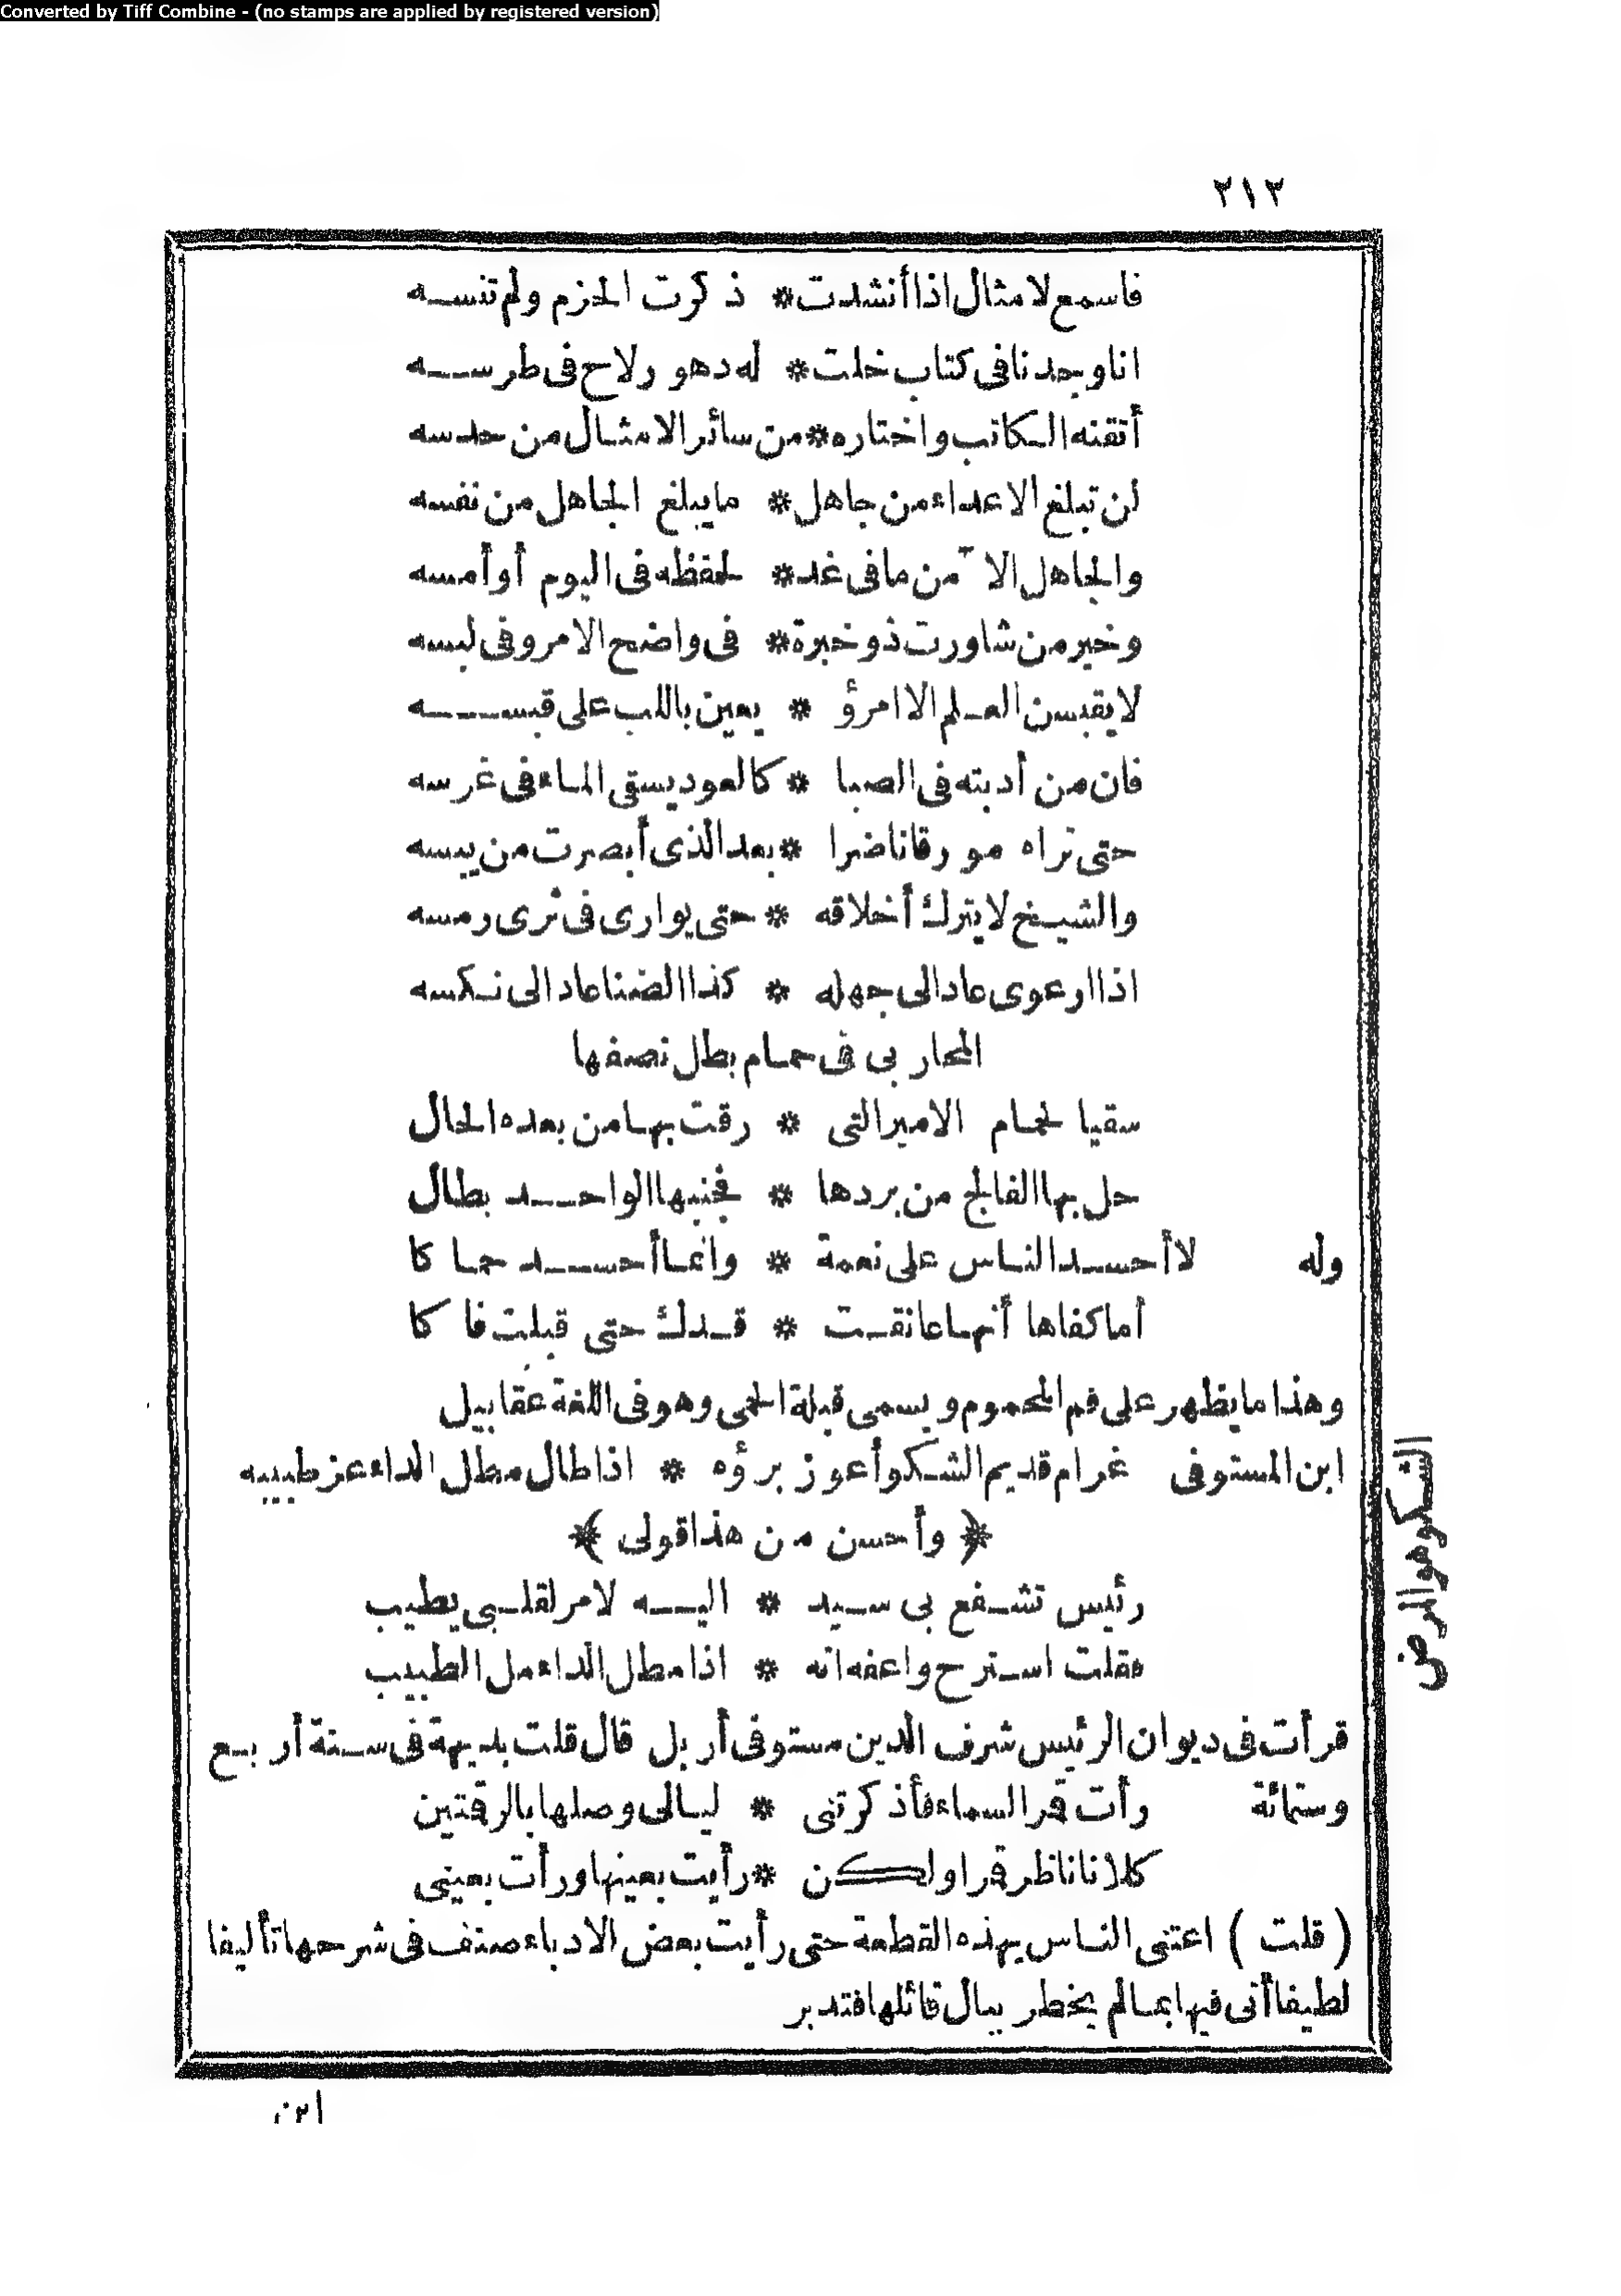 Converted by Tiff Combine - (no stamps are applied by registered version)
٢١٢
فاسمع لامثال اذا أنشدت * ذكرت الحزم ولم تنسه
انا وجدنا فى كتاب خلت * له دهور لاح فى طرسه
أتقنه الكاتب واختاره * من سائر الامثال من حدسه
لن تبلغ الاعداء من جاهل * ما يبلغ الجاهل من نفسه
والجاهل الآمن ما فى غد * لحفظه فى اليوم أو أمسه
وخير من شاورت ذو خبرة * فى واضح الامر وفى لبسه
لا يقبسن العلم الا امرؤ * يعين باللب على قبسه
فان من أدبته فى الصبا * كالعود يسقى الماء فى غرسه
حتى تراه مورقا ناضرا * بعد الذى أبصرت من يبسه
والشيخ لا يترك أخلاقه * حتى يوارى فى ثرى رمسه
اذا ارعوى عاد الى جهله * كذا الضنا عاد الى نكسه
المحاربى فى حمام بطل نصفها
سقيا لحمام الامير التى * رقت بها من بعده الحال
حل بها الفالج من بردها * فجنبها الواحد بطال
وله لا أحسد الناس على نعمة * وانما أحسد حماكا
أما كفاها أنها عانقت * قدك حتى قبلت فاكا
وهذا ما يظهر على فم المحموم ويسمى قبلة الحمى وهو فى اللغة عقابيل
ابن المستوفى غرام قديم الشكو أعوز برؤه * اذا طال مطل الداء عز طبيبه
﴿ وأحسن من هذا قولى ﴾
رئيس تشفع بى سيد * اليه لامر لقلبى يطيب
فقلت استرح واعفه انه * اذا مطل الداء مل الطبيب
الشكو هو المرض
قرأت فى ديوان الرئيس شرف الدين مستوفى أربل قال قلت بديهة فى سنة أربع
وستمائة رأت قمر السماء فأذكرتنى * ليالى وصلها بالرقتين
كلانا ناظر قمرا ولكن * رأيت بعينها ورأت بعينى
( قلت ) اعتنى الناس بهذه القطعة حتى رأيت بعض الادباء صنف فى شرحها تأليفا
لطيفا أتى فيها بما لم يخطر ببال قائلها فتدبر
ابن